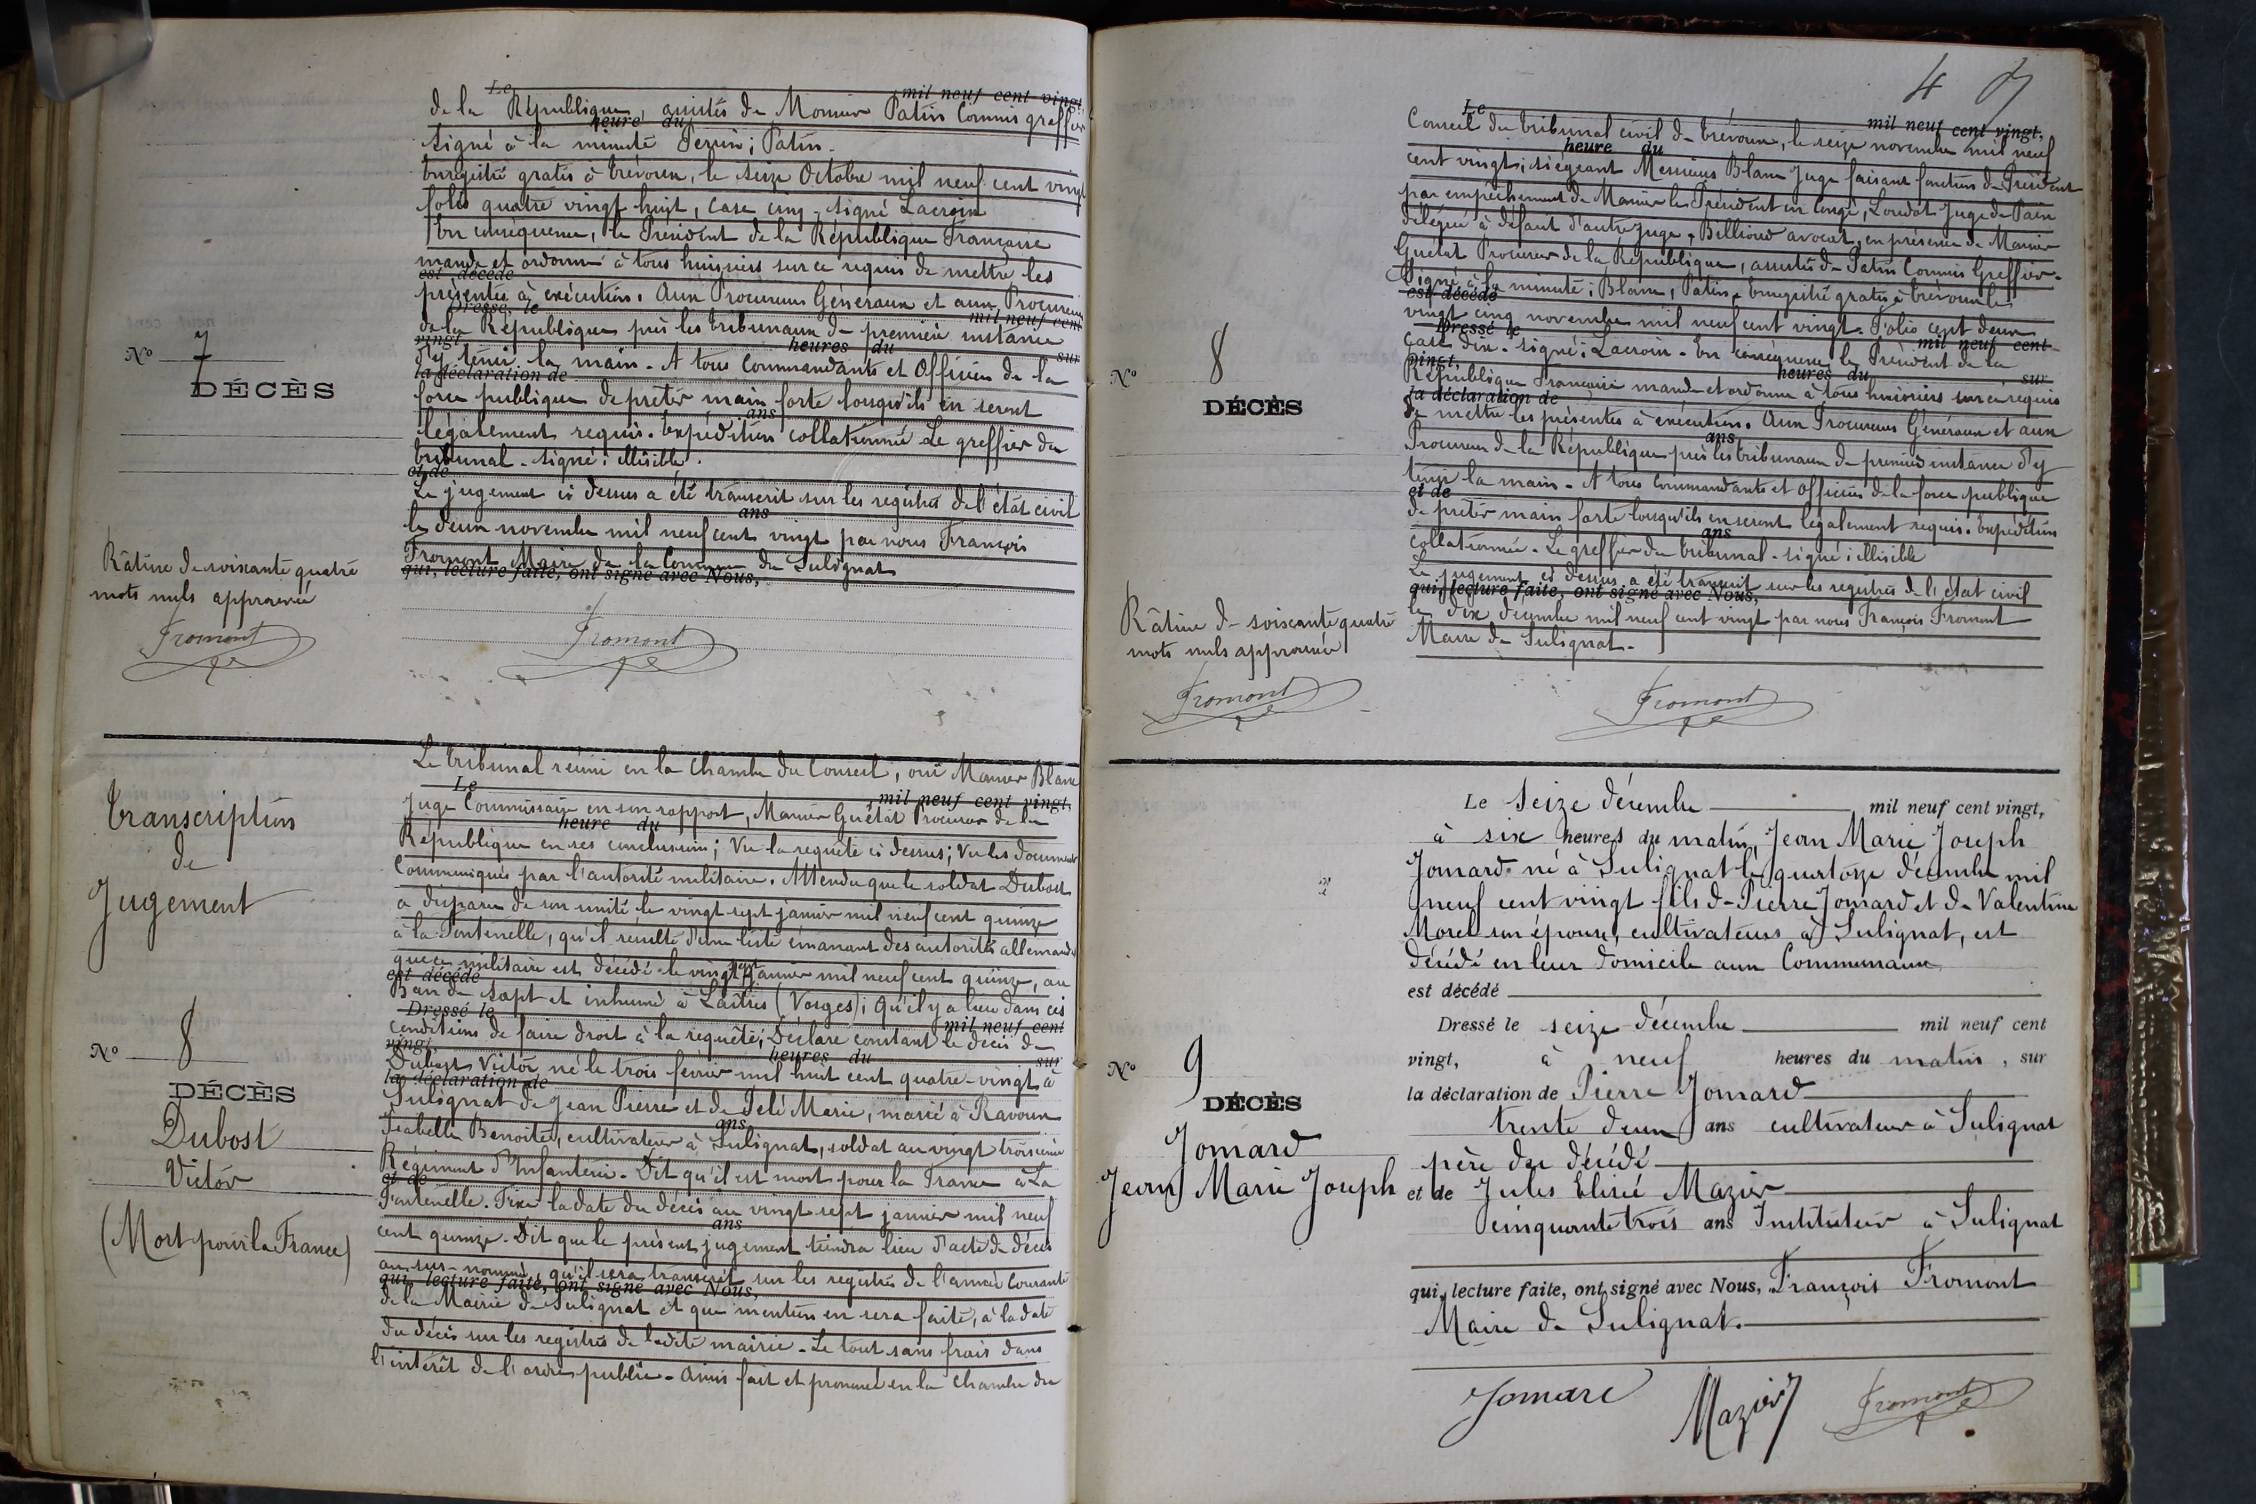 de la République, assistés de Monsieur Patin Commis greffier
signé à la minute Perrin ; Patin.
Enregistré gratis à Trévoux, le seize Octobre mil neuf cent vingt
folio quatre vingt huit, case cinq - signé Lacroix
En conséquence, le Président de la République Française
mande et ordonne à tous huissiers sur ce requis de mettre les
présentes à exécution. Aux Procureurs Généraux et aux Procureurs
de la République près les tribunaux de première instance
d'y tenir la main. A tous Commandants et Officiers de la
force publique de prêter main forte lorsqu'ils en seront
légalement requis. Expédition collationnée Le greffier du
tribunal. signé : illisible.
Le jugement ci dessus a été transcrit sur les registres de l'état civil
le deux novembre mil neuf cent vingt par nous François
Fromont Maire de la Commune de Sulignat
Le
mil neuf cent vingt,
heure du
est décédé
Dressé le
mil neuf cent
vingt,
heures du
sur
la déclaration de
ans
et de
ans
qui, lecture faite, ont signé avec Nous,
No 7
DÉCÈS
Râture de soixante quatre
mots nuls approuvée
Fromont
Fromont
Transcription
de
Jugement
No 8
DÉCÈS
Dubost
Victor
(Mort pour la France)
Le tribunal réuni en la Chambre du Conseil, ouï Monsieur Blanc
Juge Commissaire en son rapport, Monsieur Guétat Procureur de la
République en ses conclusions ; Vu la requête ci dessus ; Vu les documents
Communiqués par l'autorité militaire. Attendu que le soldat Dubost
a disparu de son unité le vingt sept janvier mil neuf cent quinze
à la Fontenelle, qu'il résulte d'une liste émanant des autorités allemandes
que ce militaire est décédé le vingt sept janvier mil neuf cent quinze, au
Ban de Sapt et inhumé à Laitres (Vosges) ; qu'il y a lieu dans ces
conditions de faire droit à la requête ; Déclare constant le décès de
Dubost Victor né le trois février mil huit cent quatre-vingt à
Sulignat de Jean Pierre et de Marie, marié à Ravoux
Isabelle Benoite, cultivateur à Sulignat, soldat au vingt troisième
Régiment d'Infanterie. Dit qu'il est mort pour la France à La
Fontenelle. Fixe la date du décès au vingt sept janvier mil neuf
cent quinze. Dit que le présent jugement tiendra lieu d'acte de décès
au sus-nommé, qu'il sera transcrit sur les registres de l'année courante
de la Mairie de Sulignat et que mention en sera faite, à la date
du décès sur les registres de ladite mairie. Le tout sans frais dans
l'intérêt de l'ordre public. Ainsi fait et prononcé en la Chambre du
Le
mil neuf cent vingt,
heure du
est décédé
Dressé le
mil neuf cent
vingt,
heures du
sur
la déclaration de
ans
et de
ans
qui, lecture faite, ont signé avec Nous,
4
Conseil du tribunal civil de Trévoux, le seize novembre mil neuf
cent vingt ; siégeant Messieurs Blanc Juge faisant fonctions de Président
par empêchement de Monsieur le Président en congé, Loudot Juge de Paix
délégué à défaut d'autre juge, Billioud avocat, en présence de Monsieur
Guétat Procureur de la République, assistés de Patin Commis Greffier.
Signé à la minute : Blanc, Patin. Enregistré gratis à Trévoux le
vingt cinq novembre mil neuf cent vingt. Folio cent deux
Case dix. signé : Lacroix. En conséquence le Président de la
République Française mande et ordonne à tous huissiers sur ce requis
de mettre les présentes à exécution. Aux Procureurs Généraux et aux
Procureurs de la République près les tribunaux de première instance d'y
tenir la main. A tous Commandants et Officiers de la force publique
de prêter main forte lorsqu'ils en seront légalement requis. Expédition
collationnée. Le greffier du tribunal. signé : illisible
Le jugement ci dessus a été transcrit sur les registres de l'état civil
le dix décembre mil neuf cent vingt par nous François Fromont
Maire de Sulignat.
Le
mil neuf cent vingt,
heure du
est décédé
Dressé le
mil neuf cent
vingt,
heures du
sur
la déclaration de
ans
et de
ans
qui, lecture faite, ont signé avec Nous,
No 8
DÉCÈS
Râture de soixante quatre
mots nuls approuvée
Fromont
Fromont
No 9
DÉCÈS
Jomard
Jean Marie Joseph
Le seize décembre mil neuf cent vingt,
à six heures du matin, Jean Marie Joseph
Jomard né à Sulignat le quatorze décembre mil
neuf cent vingt fils de Pierre Jomard et de Valentine
Morel son épouse, cultivateurs à Sulignat, est
décédé en leur domicile aux Communaux
est décédé
Dressé le seize décembre mil neuf cent
vingt, à neuf heures du matin, sur
la déclaration de Pierre Jomard
trente deux ans cultivateur à Sulignat
père du décédé
et de Jules Elisée Mazier
cinquante trois ans Instituteur à Sulignat
qui, lecture faite, ont signé avec Nous, François Fromont
Maire de Sulignat.
Jomard Mazier Fromont